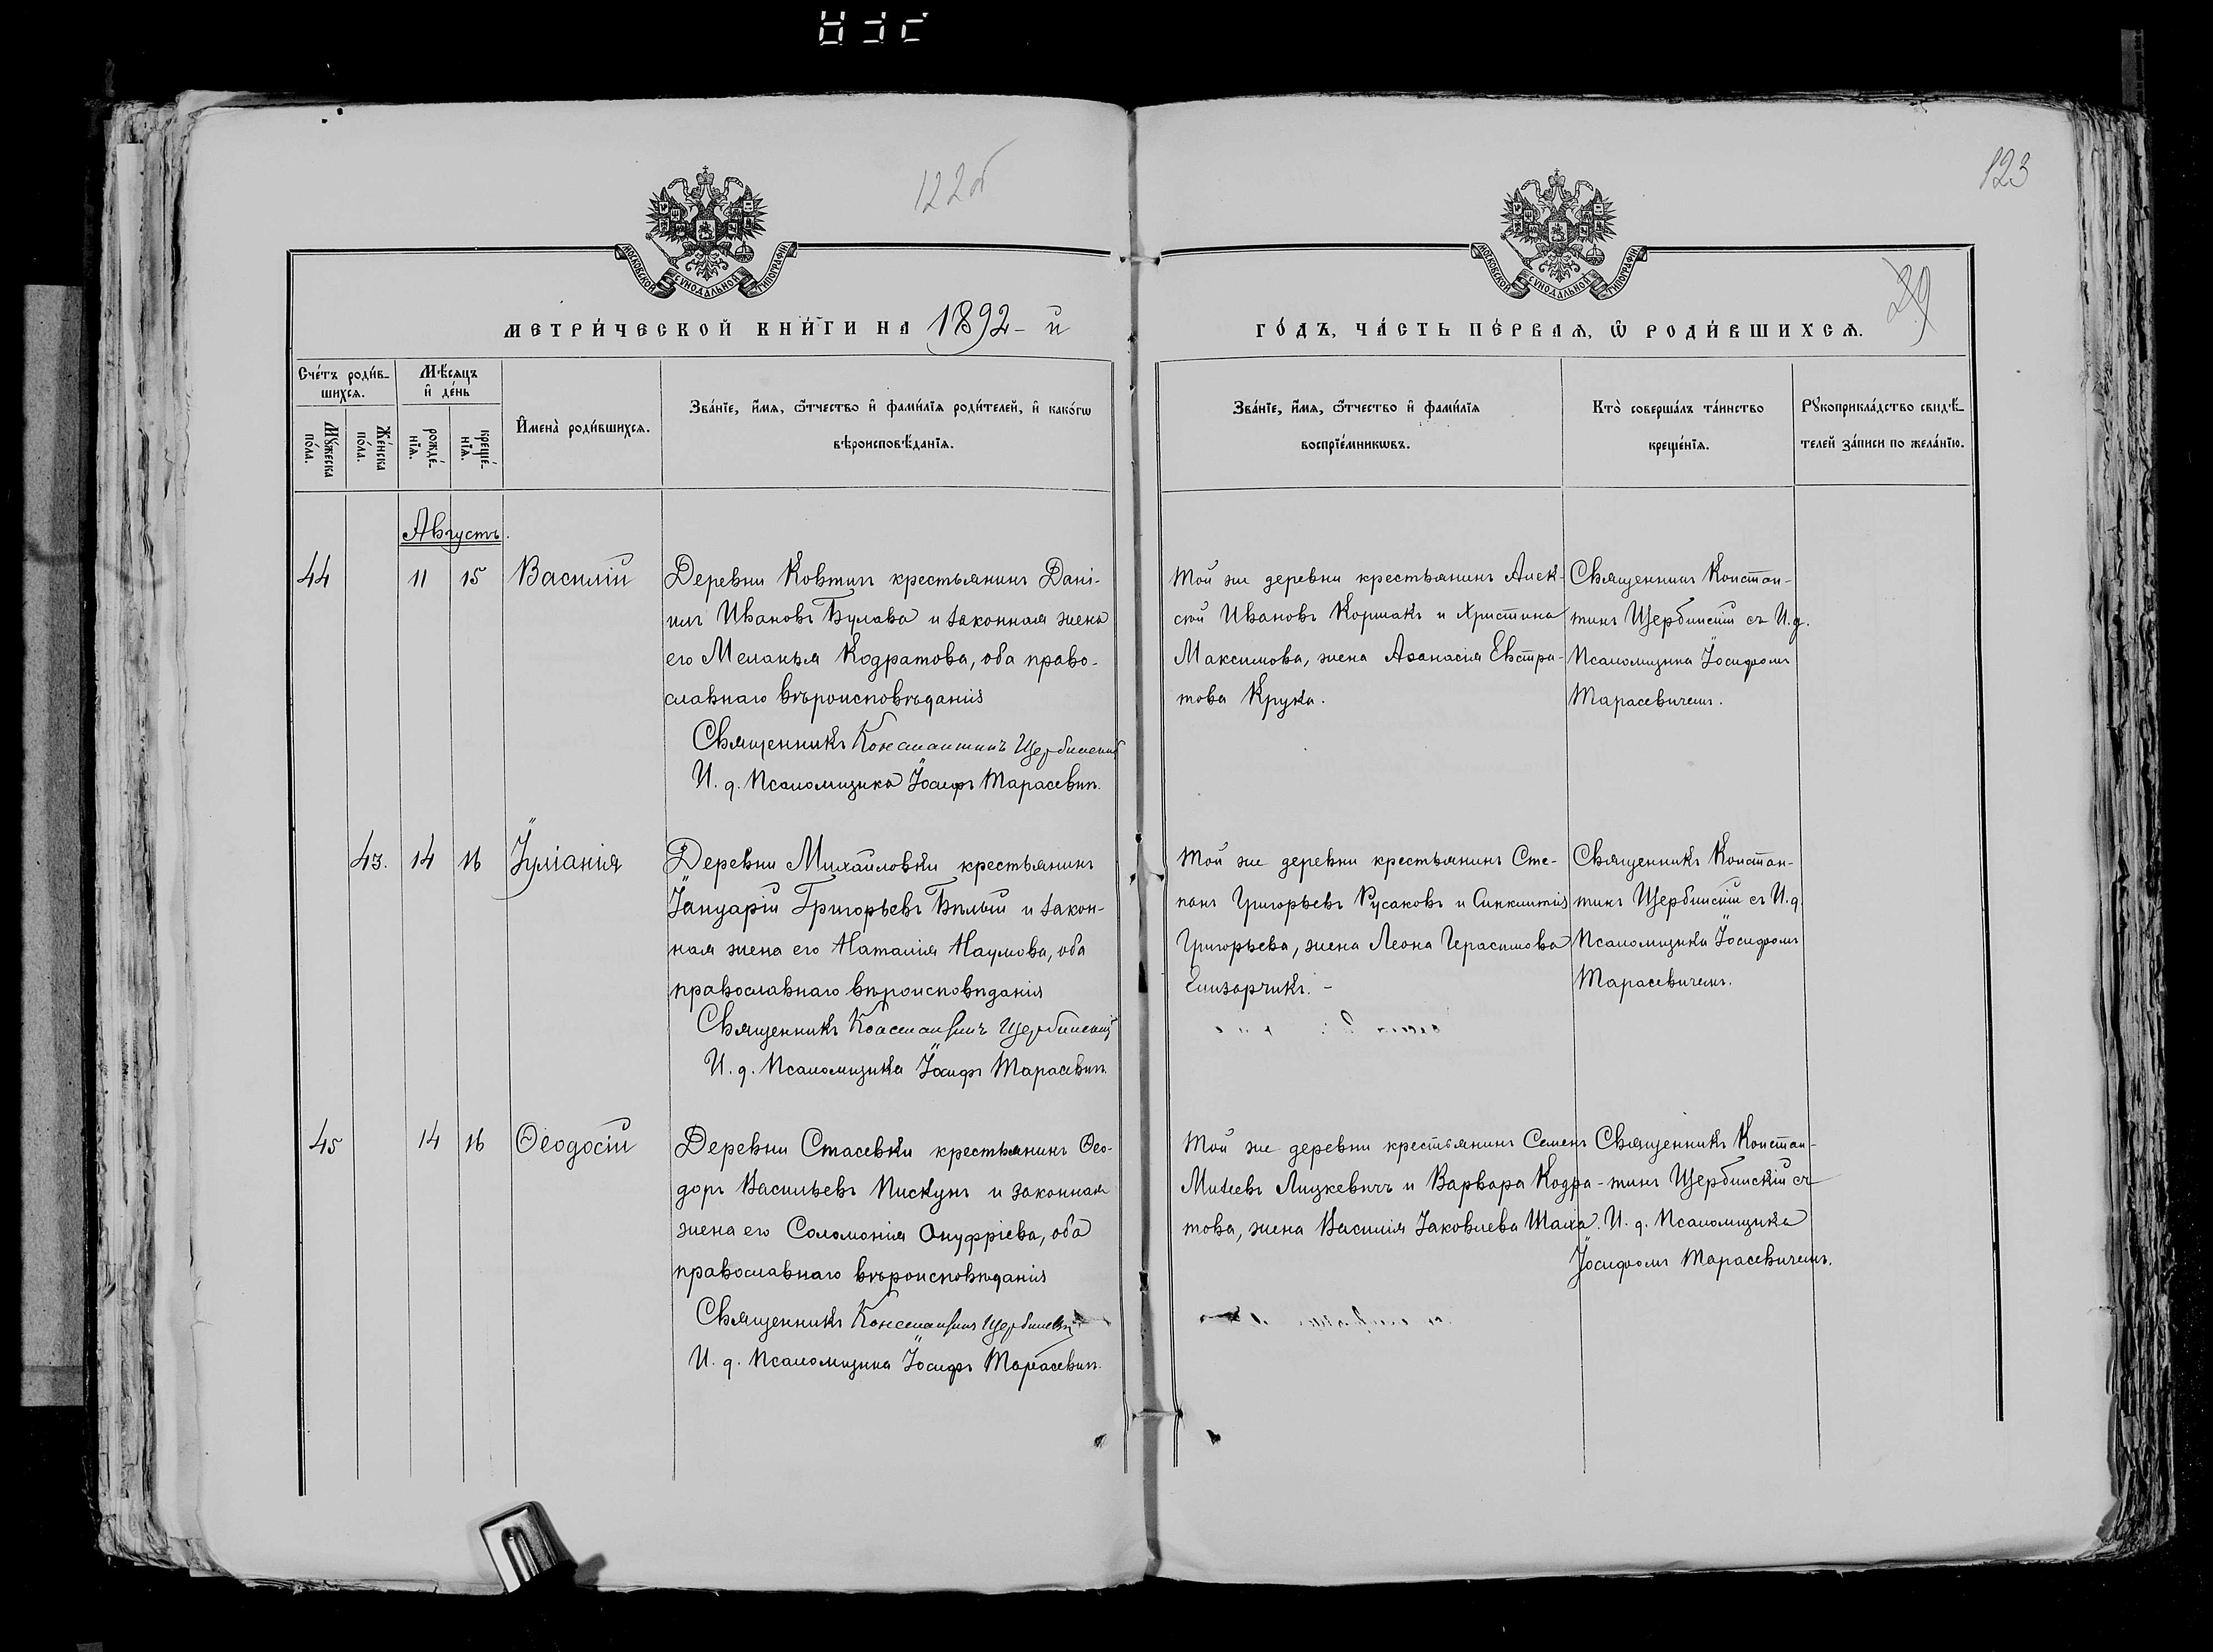 122б
123
29
МОСКОВСКОЙ СУНОДАЛЬНОЙ ТИПОГРАФІИ
МОСКОВСКОЙ СУНОДАЛЬНОЙ ТИПОГРАФІИ
МЕТРИ́ЧЕСКОЙ КНИ́ГИ НА 1892-й
ГО́ДЪ, ЧА́СТЬ ПЕ́РВАЯ, Ѿ РОДИ́ВШИХСѦ.
Сче́тъ роди́в-
шихсѧ.
Мѣ́сяцъ
и҆ де́нь
Му́жеска
по́ла.
Же́нска
по́ла.
рожде́-
нїѧ.
креще́-
нїѧ.
И҆мена̀ роди́вшихсѧ.
Зва́нїе, и҆́мѧ, ѻ҆́тчество и҆ фами́лїѧ роди́телей, и҆ како́гѡ
вѣроисповѣ́данїѧ.
Зва́нїе, и҆́мѧ, ѻ҆́тчество и҆ фами́лїѧ
воспрїе́мникѡвъ.
Кто̀ соверша́лъ та́инство
креще́нїѧ.
Рꙋкоприкла́дство свидѣ́-
телей за́писи по жела́нїю.
Августъ.
44 11 15 Василій
Деревни Ковтич крестьянинъ Дані-
илъ Ивановъ Булава и законная жена
его Меланья Кодратова, оба право-
славнаго вѣроисповѣданія
Священникъ Константинъ Щербинскій
И. д. Псаломщика Іосифъ Тарасевич.
Той же деревни крестьянинъ Алек-
сѣй Ивановъ Коршакъ и Христина
Максимова, жена Аѳанасія Евстра-
това Крука.
Священникъ Констан-
тинъ Щербинскій съ И.д.
Псаломщика Іосифомъ
Тарасевичемъ.
43. 14 16 Іуліанія
Деревни Михайловки крестьянинъ
Іануарій Григорьевъ Бѣлый и закон-
ная жена его Наталія Наумова, оба
православнаго вѣроисповѣданія
Священникъ Константинъ Щербинскій
И. д. Псаломщика Іосифъ Тарасевич.
Той же деревни крестьянинъ Сте-
панъ Григорьевъ Русаковъ и Синклитія
Григорьева, жена Леона Герасимова
Елизарчикъ. -
Священникъ Констан-
тинъ Щербинскій съ И.д.
Псаломщика Іосифомъ
Тарасевичемъ.
45 14 16 Ѳеодосій
Деревни Стасевки крестьянинъ Ѳео-
доръ Васильевъ Пискунъ и законная
жена его Соломонія Онуфріева, оба
православнаго вѣроисповѣданія
Священникъ Константинъ Щербинскій
И. д. Псаломщика Іосифъ Тарасевич.
Той же деревни крестьянинъ Семенъ
Лицкевичъ и Варвара Кодра-
това, жена Василія Іаковлева
Священникъ Констан-
тинъ Щербинскій съ
И. д. Псаломщика
Іосифомъ Тарасевичемъ.